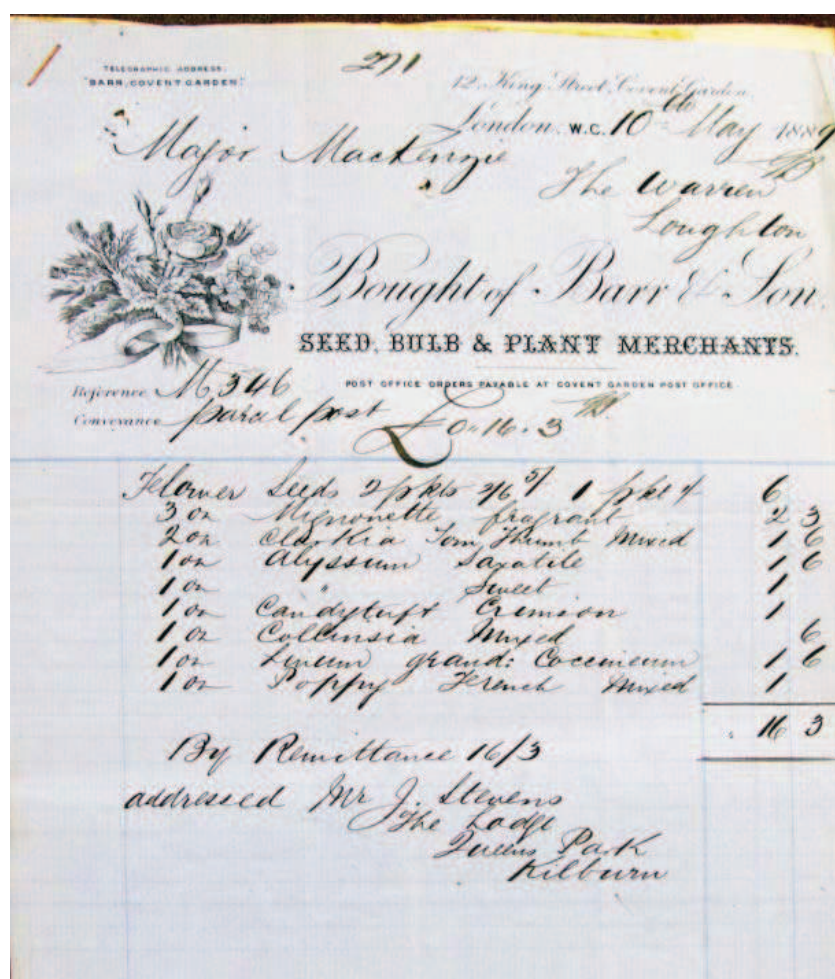 TELEGRAPHIC ADDRESS.
"BARR, COVENT GARDEN."
271
12, King Street, Covent Garden,
London, W.C. 10th May 1889
Major Mackenzie
The Warren
Loughton
Bought of Barr & Son,
SEED, BULB & PLANT MERCHANTS.
POST OFFICE ORDERS PAYABLE AT COVENT GARDEN POST OFFICE
Reference M 346
Conveyance parcel post £0-16-3
Flower Seeds 2 pkts 2/6 5/ 1 pkt 1/ 6
3 oz Mignonette fragrant 2 3
2 oz Clarkia Tom Thumb Mixed 1 6
1 oz Alyssum Saxatile 1 6
1 oz " Sweet 1
1 oz Candytuft Crimson 1
1 oz Collinsia Mixed 6
1 oz Linum grand: Coccineum 1 6
1 oz Poppy French Mixed 1
16 3
By Remittance 16/3
addressed Mr J. Stevens
The Lodge
Queens Park
Kilburn